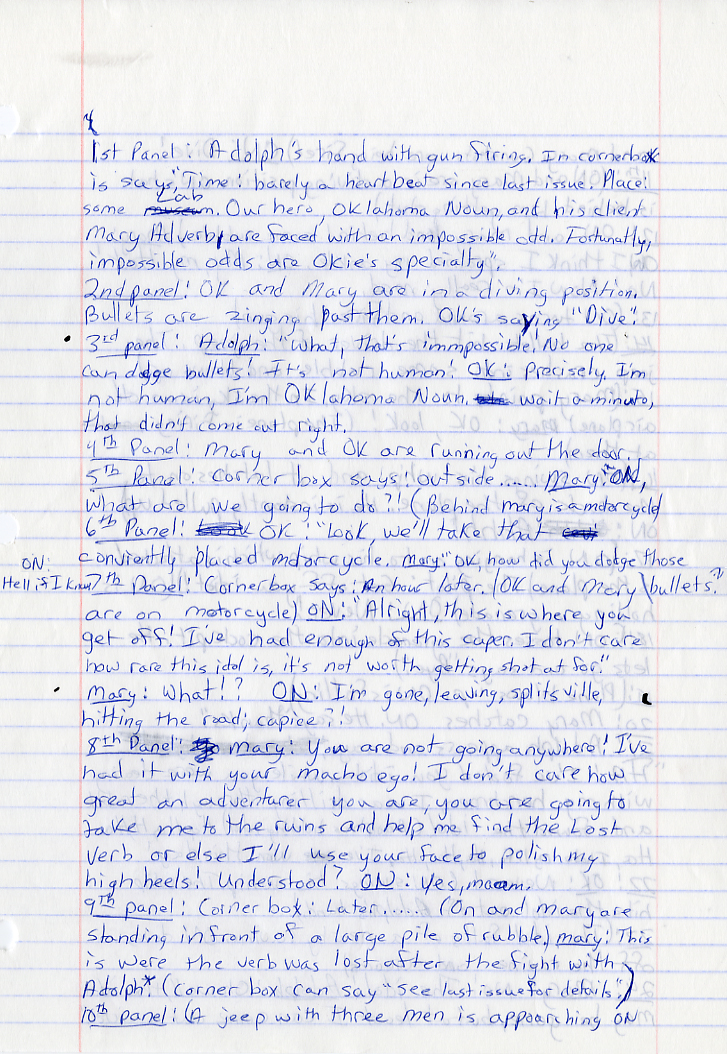 1st Panel: Adolph's hand with gun firing. In cornerbox
is says, "Time: barely a heartbeat since last issue. Place:
some Lab. Our hero, Oklahoma Noun, and his client
Mary Adverb, are faced with an impossible odd. Fortunatly,
impossible odds are Okie's specialty".
2nd panel: OK and Mary are in a diving position.
Bullets are zinging past them. OK's saying "Dive".
3rd panel: Adolph: "What, that's immpossible! No one
can dodge bullets! It's not human! OK: Precisely, I'm
not human, I'm Oklahoma Noun. wait a minute,
that didn't come out right.
4th Panel: Mary and OK are running out the door.
5th Panel: Corner box says: outside...... Mary: "ON,
what are we going to do?! (Behind mary is a motorcycle)
6th Panel: OK: "Look, we'll take that
conviently placed motorcycle. Mary: "OK, how did you dodge those
bullets?"
ON:
Hell if I know
7th Panel: Cornerbox says: An hour later. (OK and Mary
are on motorcycle) ON: "Alright, this is where you
get off! I've had enough of this caper. I don't care
how rare this idol is, it's not worth getting shot at for."
Mary: What!? ON: I'm gone, leaving, splitsville,
hitting the road; capice?!
8th Panel: mary: You are not going anywhere! I've
had it with your macho ego! I don't care how
great an adventurer you are, you are going to
take me to the ruins and help me find the Lost
Verb or else I'll use your face to polish my
high heels! Understood? ON: yes, maam.
9th panel: Corner box: Later..... (On and mary are
standing infront of a large pile of rubble.) mary: This
is were the verb was lost after the fight with
Adolph.* (corner box can say "see last issue for details".)
10th panel: (A jeep with three men is appoarching ON